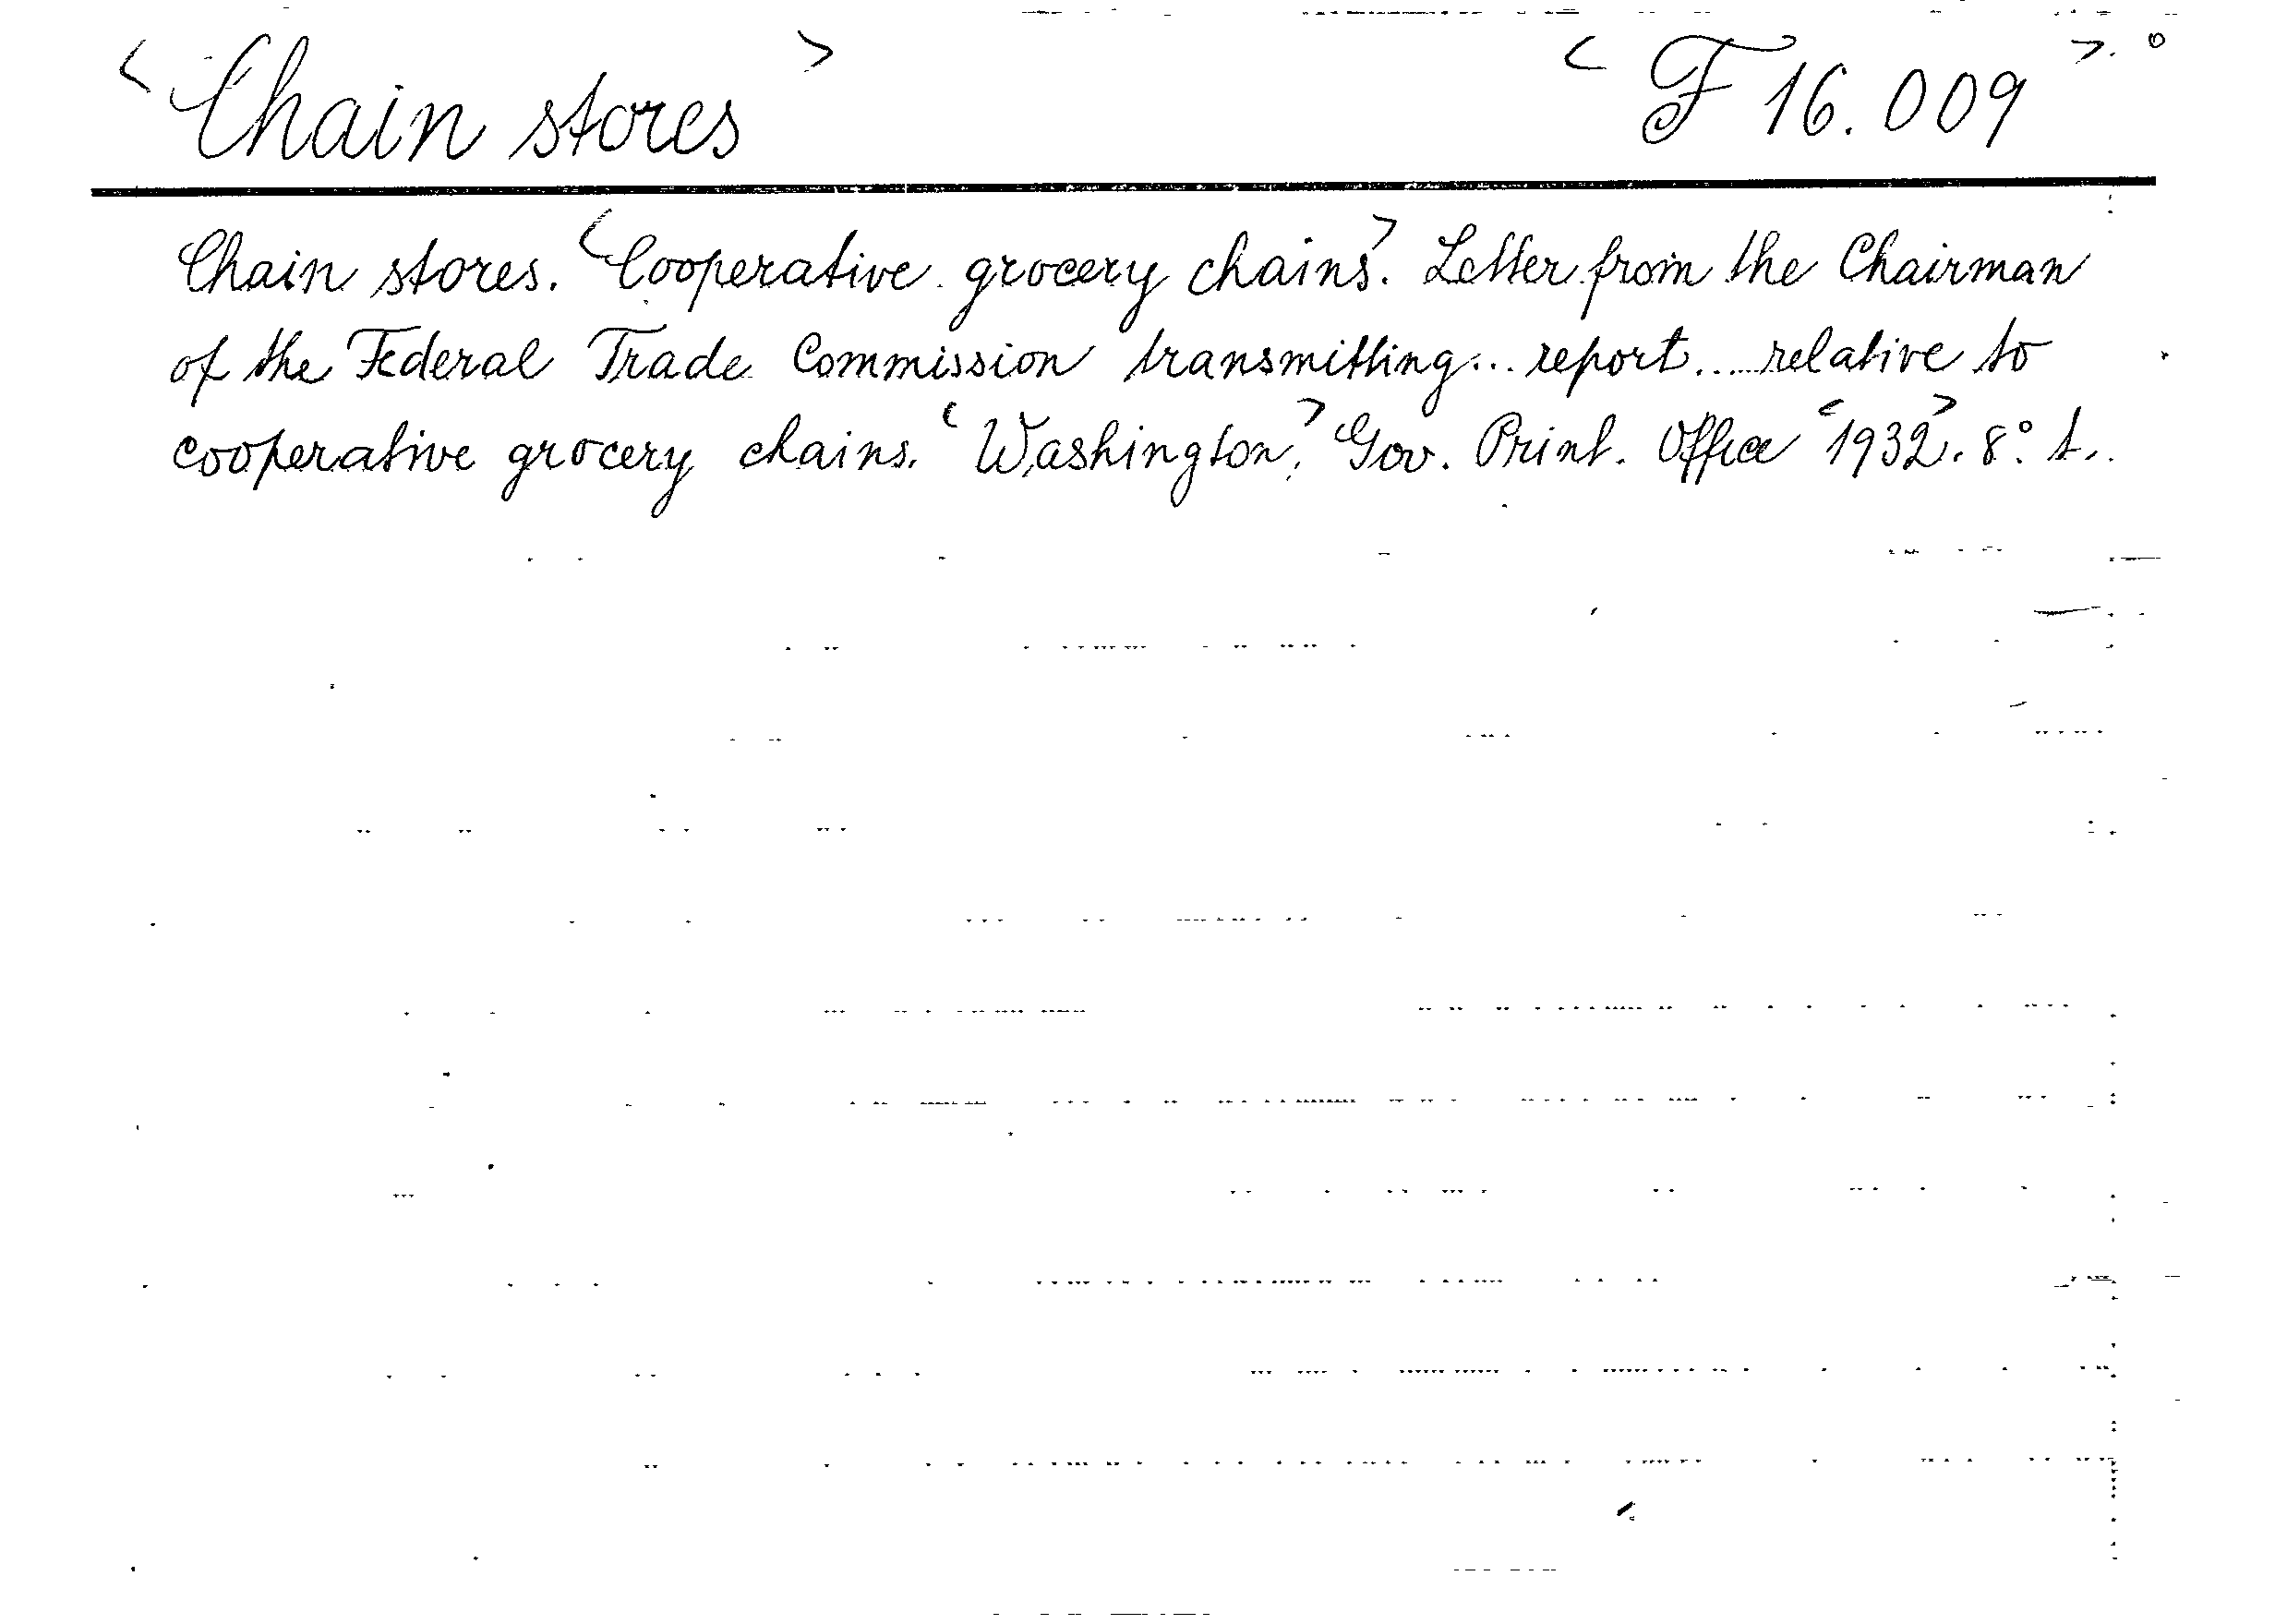 <Chain stores> <F 16.009>.
Chain stores. <Cooperative grocery chains>. Letter from the Chairman
of the Federal Trade Commission transmitting... report... relative to
cooperative grocery chains. <Washington,> Gov. Print. Office <1932>. 8° t..